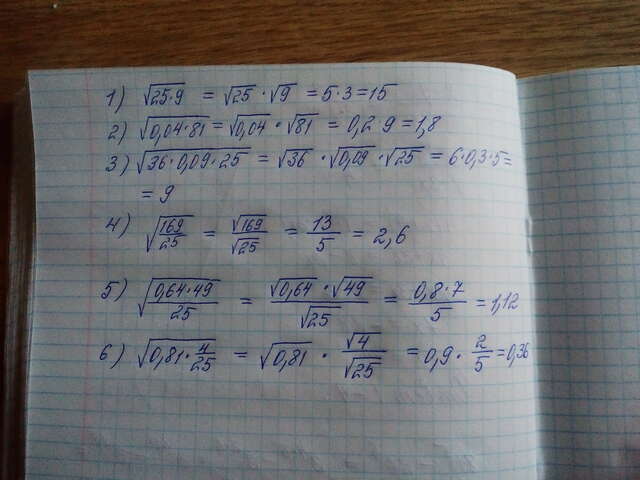 1) √25·9 = √25 · √9 = 5·3=15
2) √0,04·81 = √0,04 · √81 = 0,2 9 = 1,8
3) √36·0,09·25 = √36 · √0,09 · √25 = 6·0,3·5=
= 9
4) √169/25 = √169/√25 = 13/5 = 2,6
5) √0,64·49/25 = √0,64·√49/√25 = 0,8·7/5 = 1,12
6) √0,81·4/25 = √0,81 · √4/√25 = 0,9 · 2/5 = 0,36